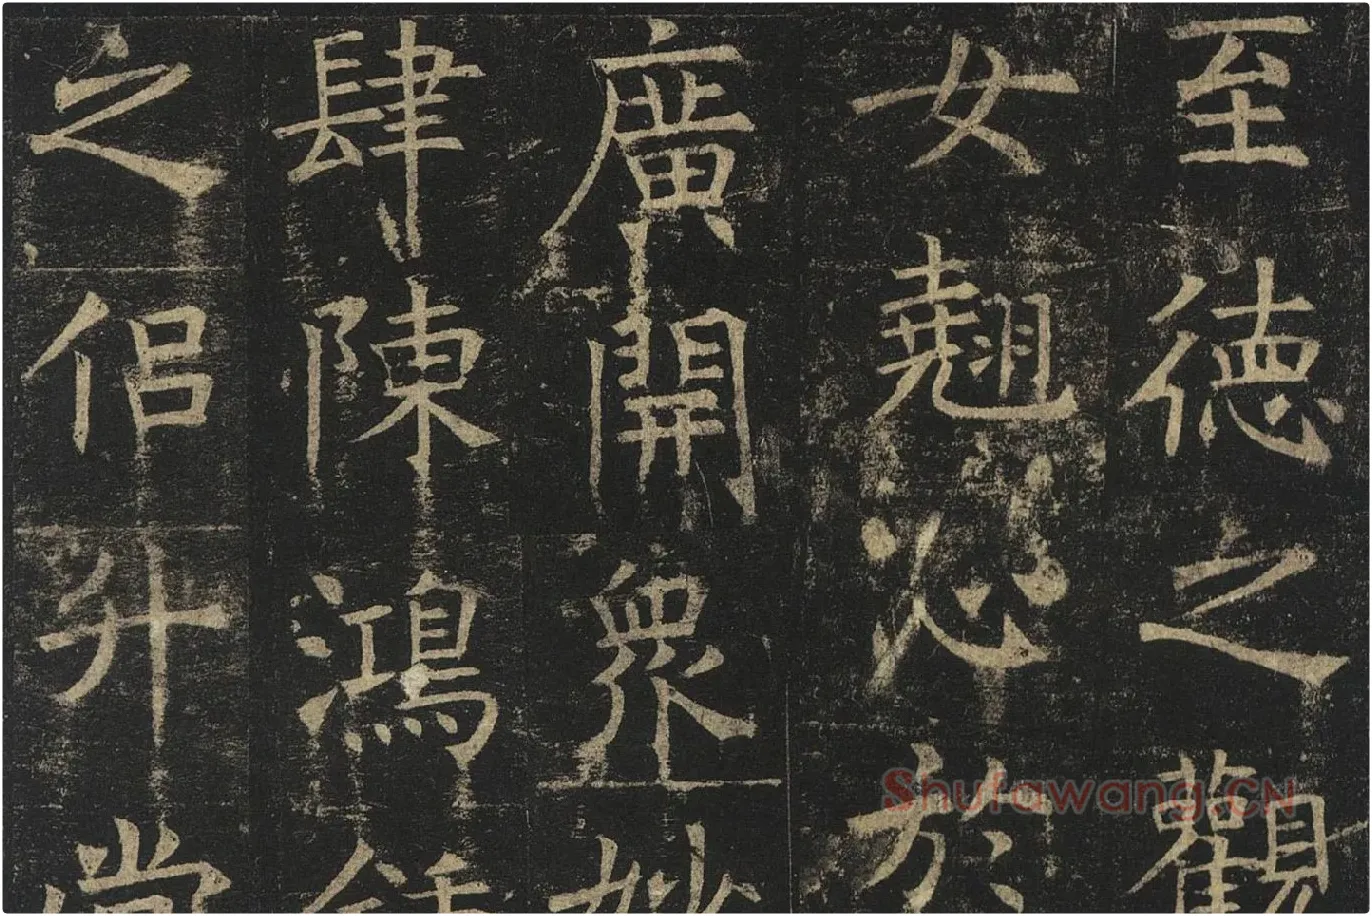 至德之觀
女翹心於
廣開眾妙
肆陳鴻鍾
之侣升堂
Shufawang.CN